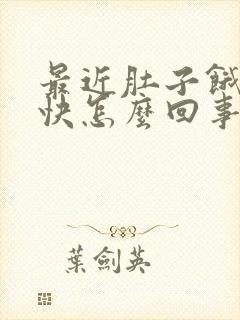 最近肚子餓
快怎麼回事
葉劍英